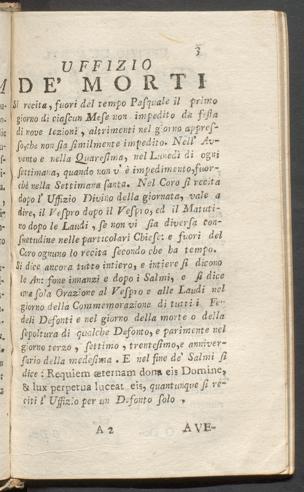 3
UFFIZIO
DE' MORTI
Si recita, fuori del tempo Pasquale il primo
giorno di ciascun Mese non impedito da festa
di nove lezioni, altrimenti nel giorno appres-
so, che non sia similmente impedito. Nell' Av-
vento e nella Quaresima, nel Lunedì di ogni
settimana, quando non v' è impedimento, fuor-
chè nella Settimana santa. Nel Coro si recita
dopo l' Uffizio Divino della giornata, vale a
dire, il Vespro dopo il Vespro, ed il Matuti-
no dopo le Laudi, se non vi sia diversa con-
suetudine nelle particolari Chiese: e fuori del
Coro ognuno lo recita secondo che ha tempo.
Si dice ancora tutto intiero, e intiere si dicono
le Antifone innanzi e dopo i Salmi, e si dice
una sola Orazione al Vespro e alle Laudi nel
giorno della Commemorazione di tutti i Fe-
deli Defonti e nel giorno della morte o della
sepoltura di qualche Defonto, e parimente nel
giorno terzo, settimo, trentesimo, e anniver-
sario della medesima. E nel fine de' Salmi si
dice: Requiem æternam dona eis Domine,
& lux perpetua luceat eis, quantunque si re-
citi l' Uffizio per un Defonto solo.
A 2 AVE-